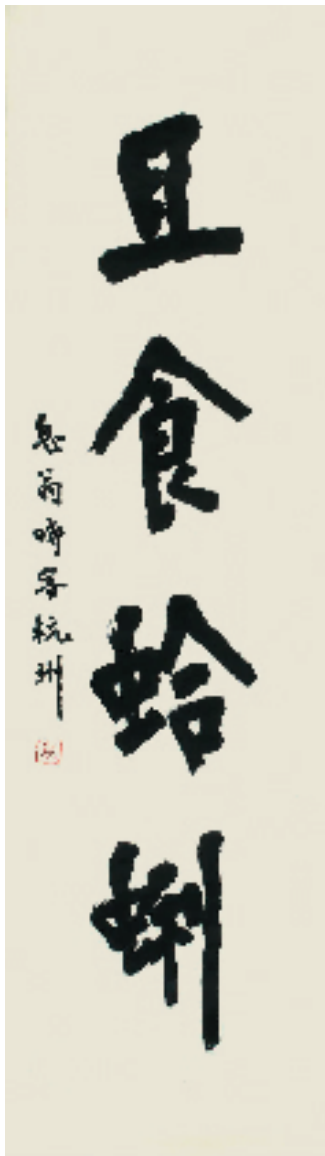 且食蛤蜊
息翁時客杭州